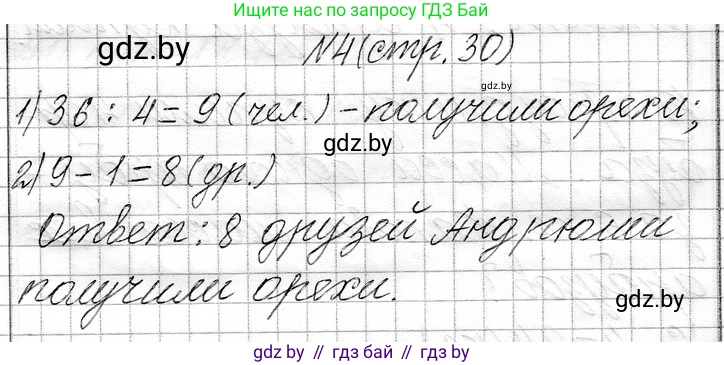 Ищите нас по запросу ГДЗ Бай
gdz.by
№4 (стр. 30)
gdz.by
1) 36 : 4 = 9 (чел.) - получили орехи;
gdz.by
2) 9 - 1 = 8 (др.)
Ответ: 8 друзей Андрюши
получили орехи.
gdz.by
gdz.by // гдз бай // гдз by